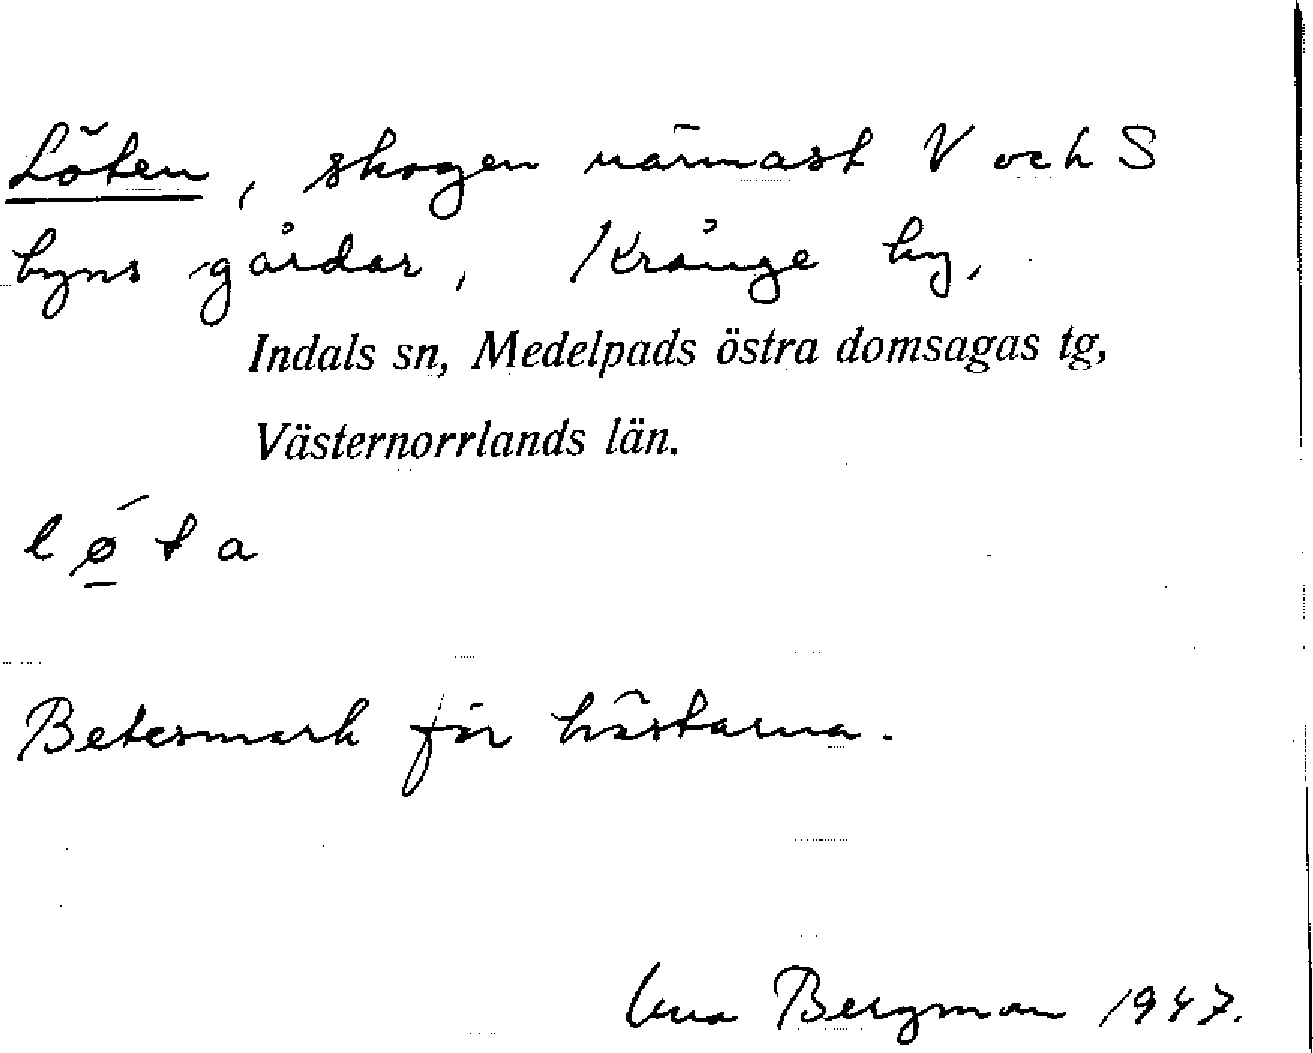 Löten, skogen närmast V och S
byns gårdar, Krånge by,
Indals sn, Medelpads östra domsagas tg,
Västernorrlands län.
lǿta
Betesmark för hästarna.
Bergman 1947.